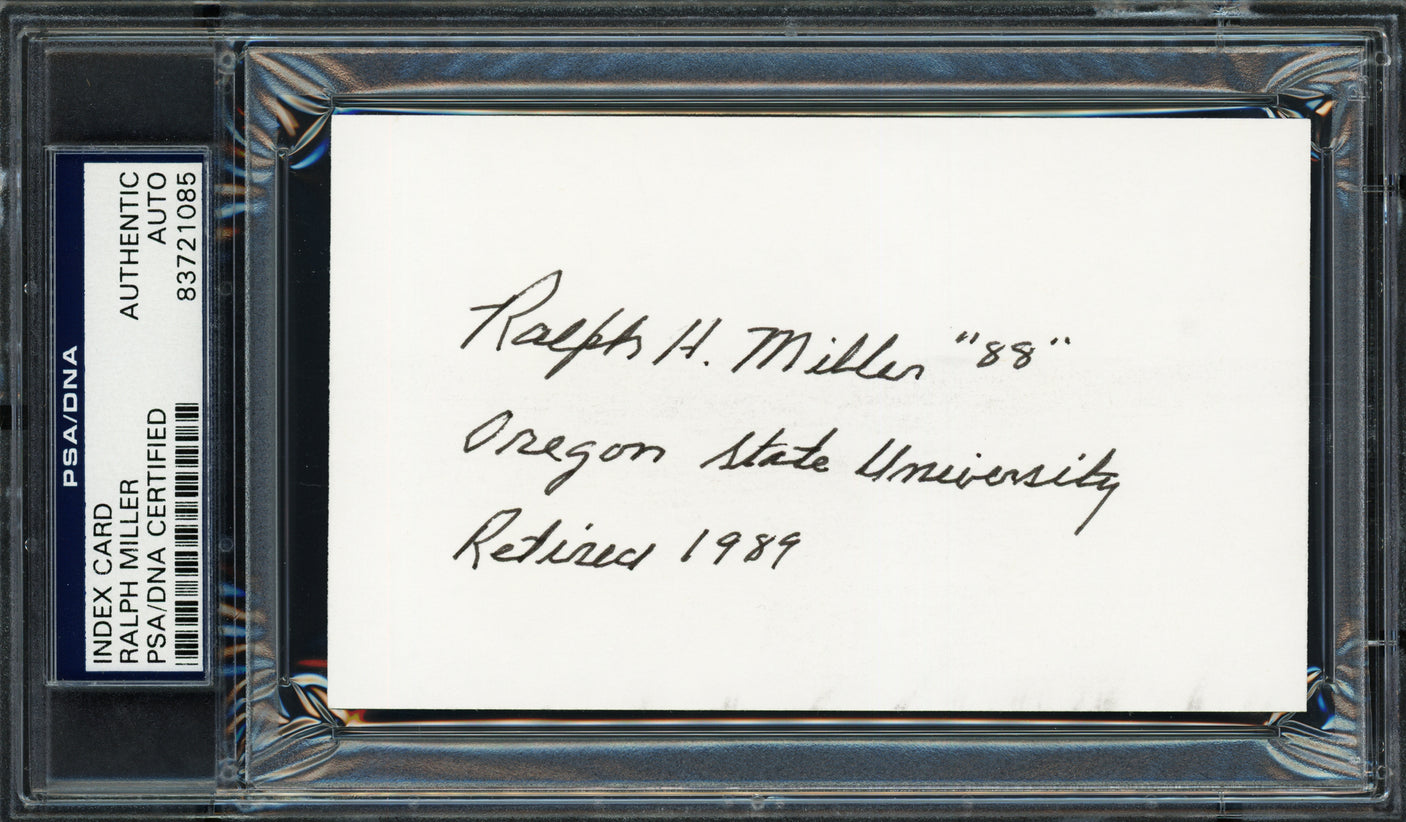 PSA/DNA
INDEX CARD
RALPH MILLER
PSA/DNA CERTIFIED
AUTHENTIC
AUTO
83721085
Ralph H. Miller "88"
Oregon State University
Retired 1989